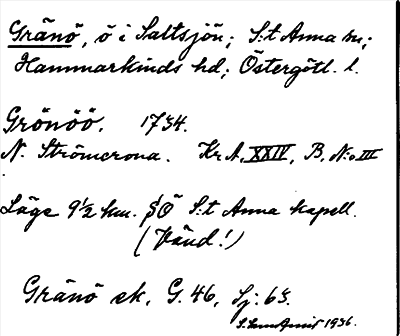 Gränö, ö i Saltsjön; S:t Anna sn;
Hammarkinds hd; Östergötl. l.
Grönöö. 1734.
N. Strömcrona. Kr A, XXIV, B, N:o III
Läge 9½ km. SÖ S:t Anna kapell.
(Vänd!)
Gränö ek. G. 46, Sj: 63.
1936.